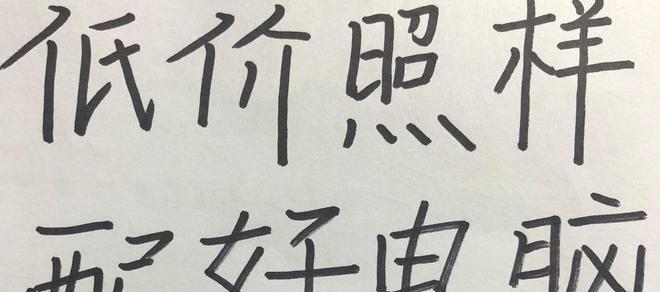 低价照样
配好电脑